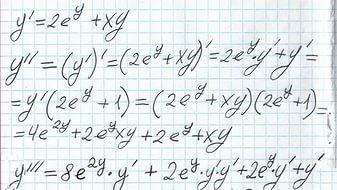 y' = 2e^y + xy
y'' = (y')' = (2e^y + xy)' = 2e^y · y' + y' =
= y'(2e^y + 1) = (2e^y + xy)(2e^y + 1) =
= 4e^{2y} + 2e^y xy + 2e^y + xy
y''' = 8e^{2y} · y' + 2e^y · y' · y' + 2e^y · y' + y'